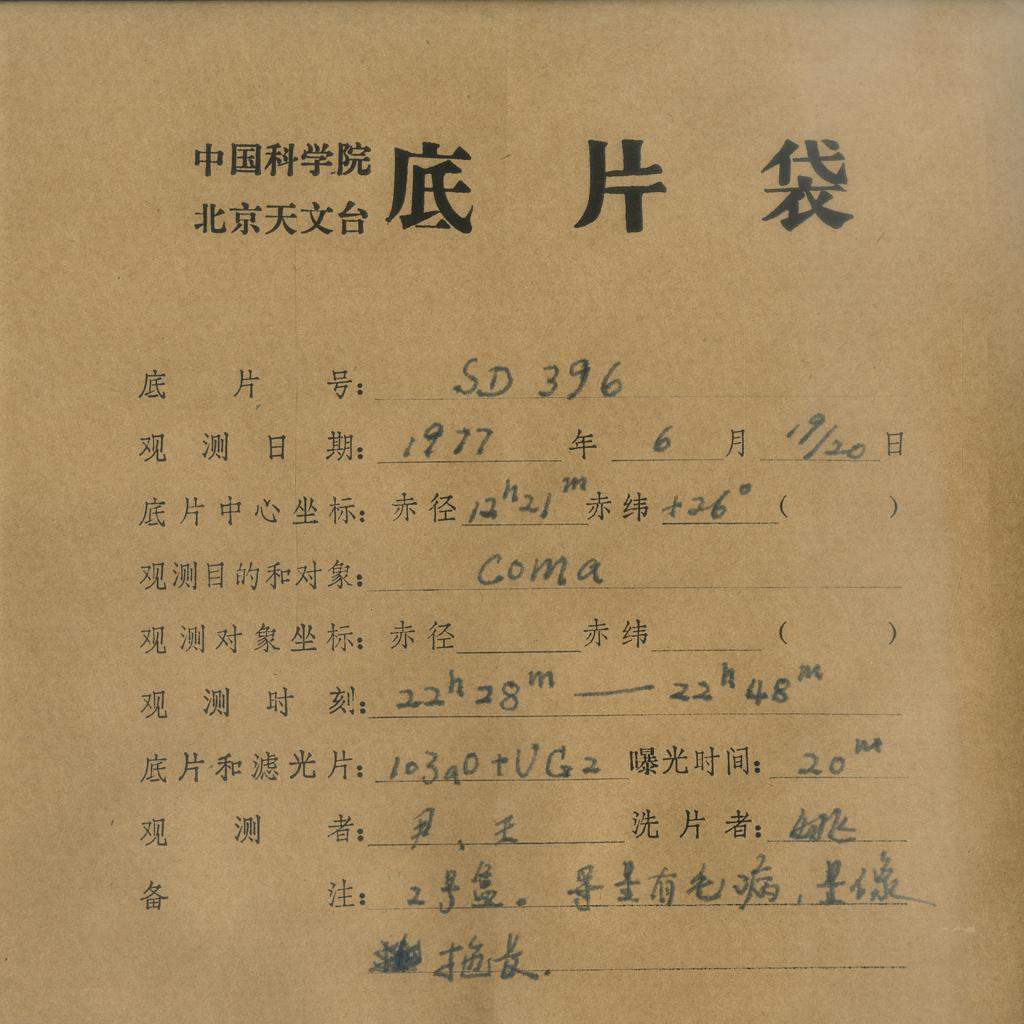 中国科学院
北京天文台
底片袋
底片号: SD 396
观测日期: 1977 年 6 月 19/20 日
底片中心坐标: 赤径 12h21m 赤纬 +26° ( )
观测目的和对象: Coma
观测对象坐标: 赤径 赤纬 ( )
观测时刻: 22h28m — 22h48m
底片和滤光片: 103aO+UG2 曝光时间: 20m
观测者: 尹、王 洗片者: 姚
备注: 2号盒. 导星有毛病,星像
拖长.